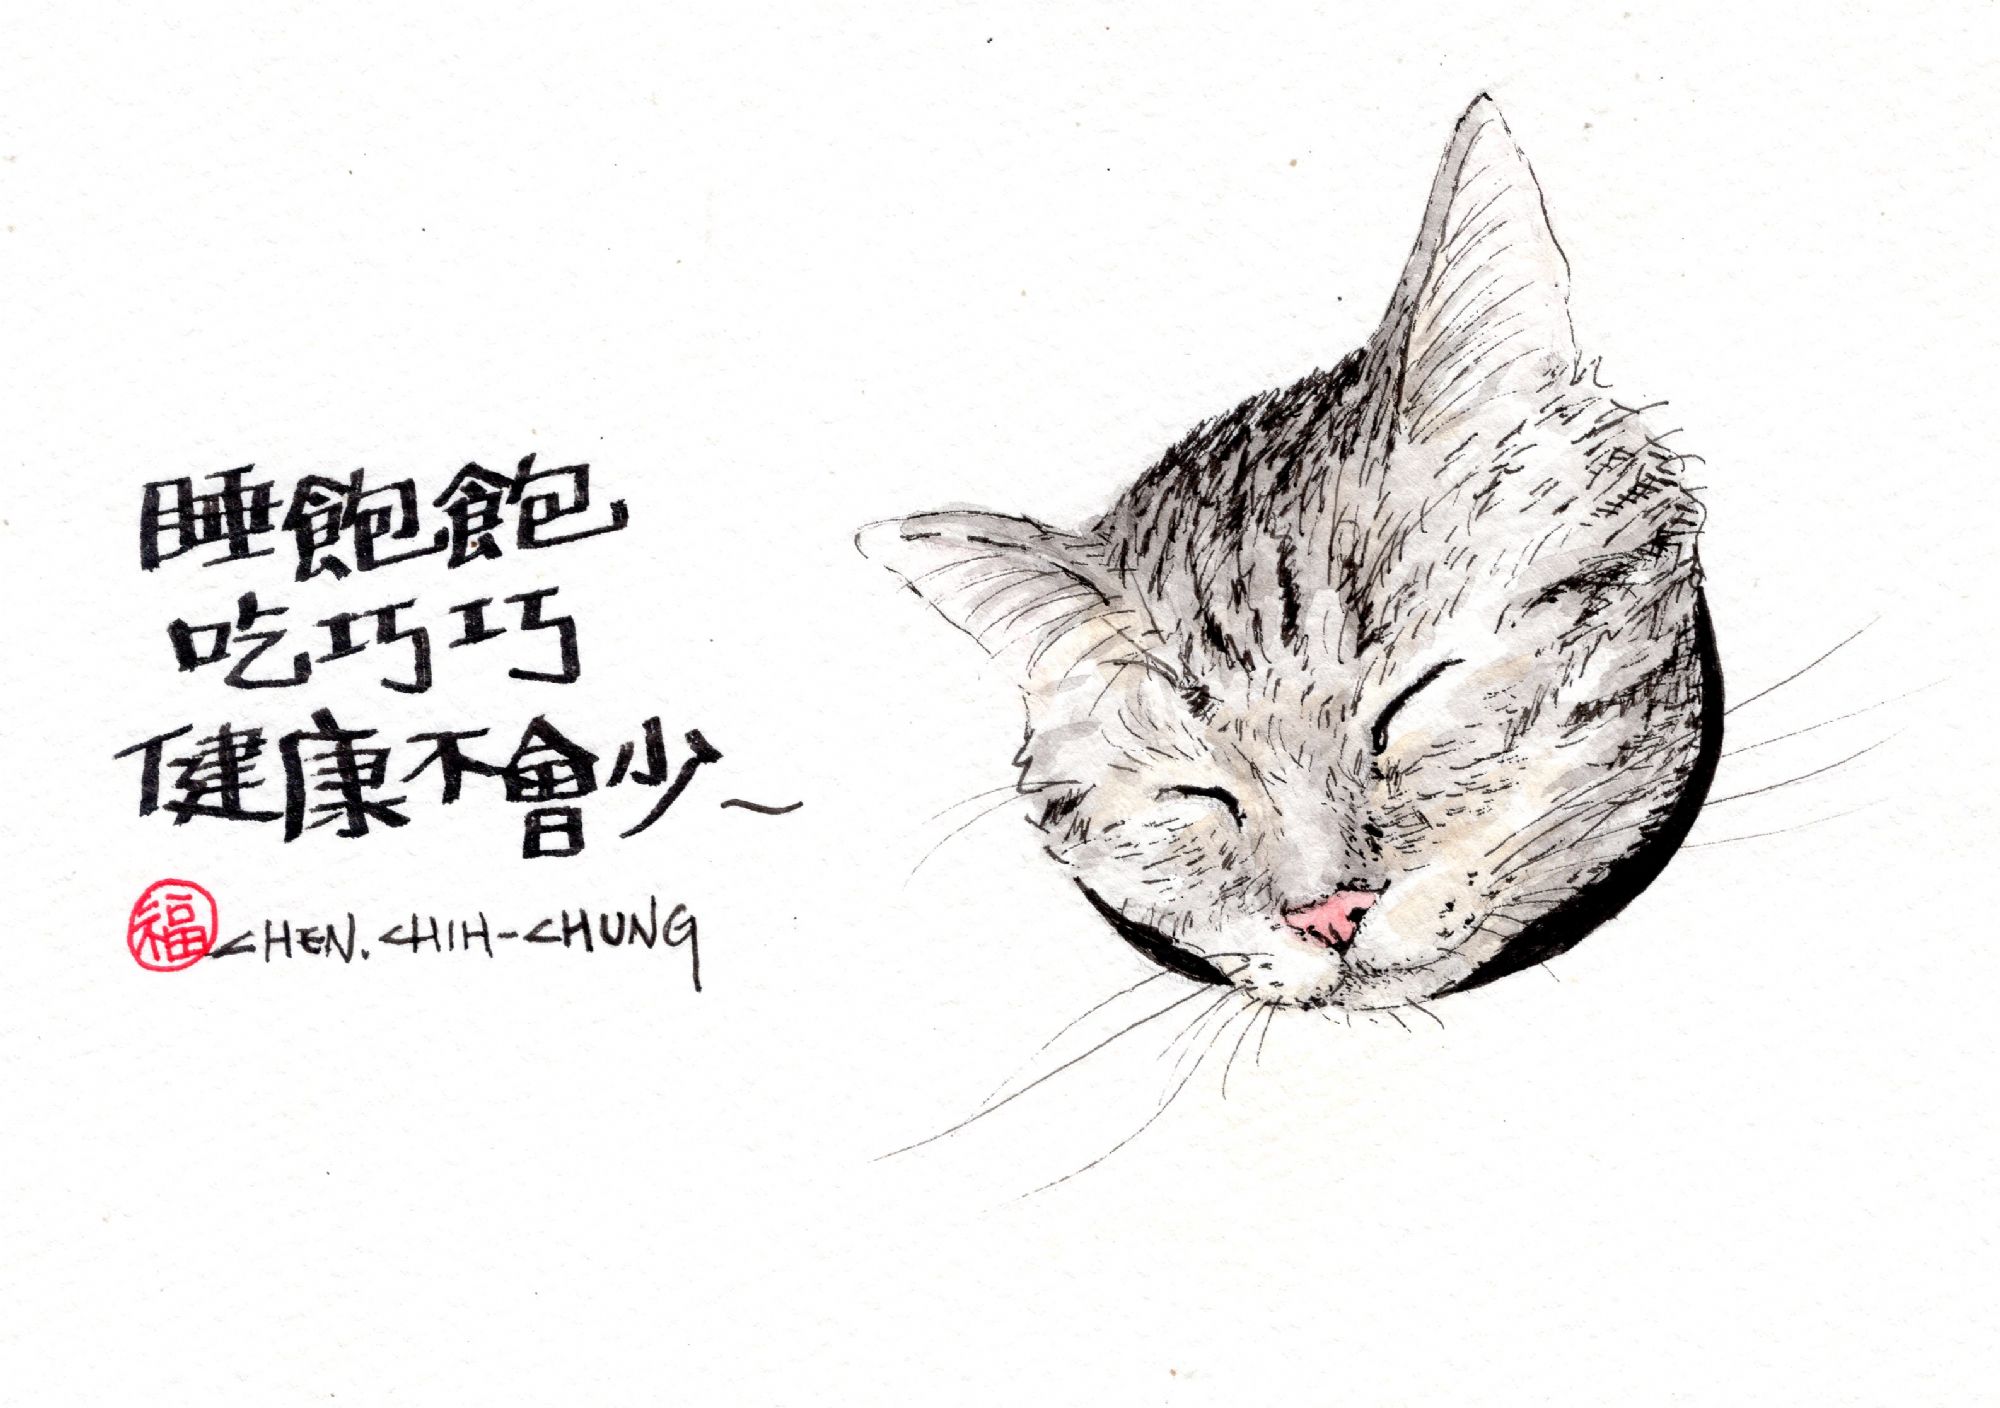 睡飽飽
吃巧巧
健康不會少~
福 CHEN. CHIH-CHUNG